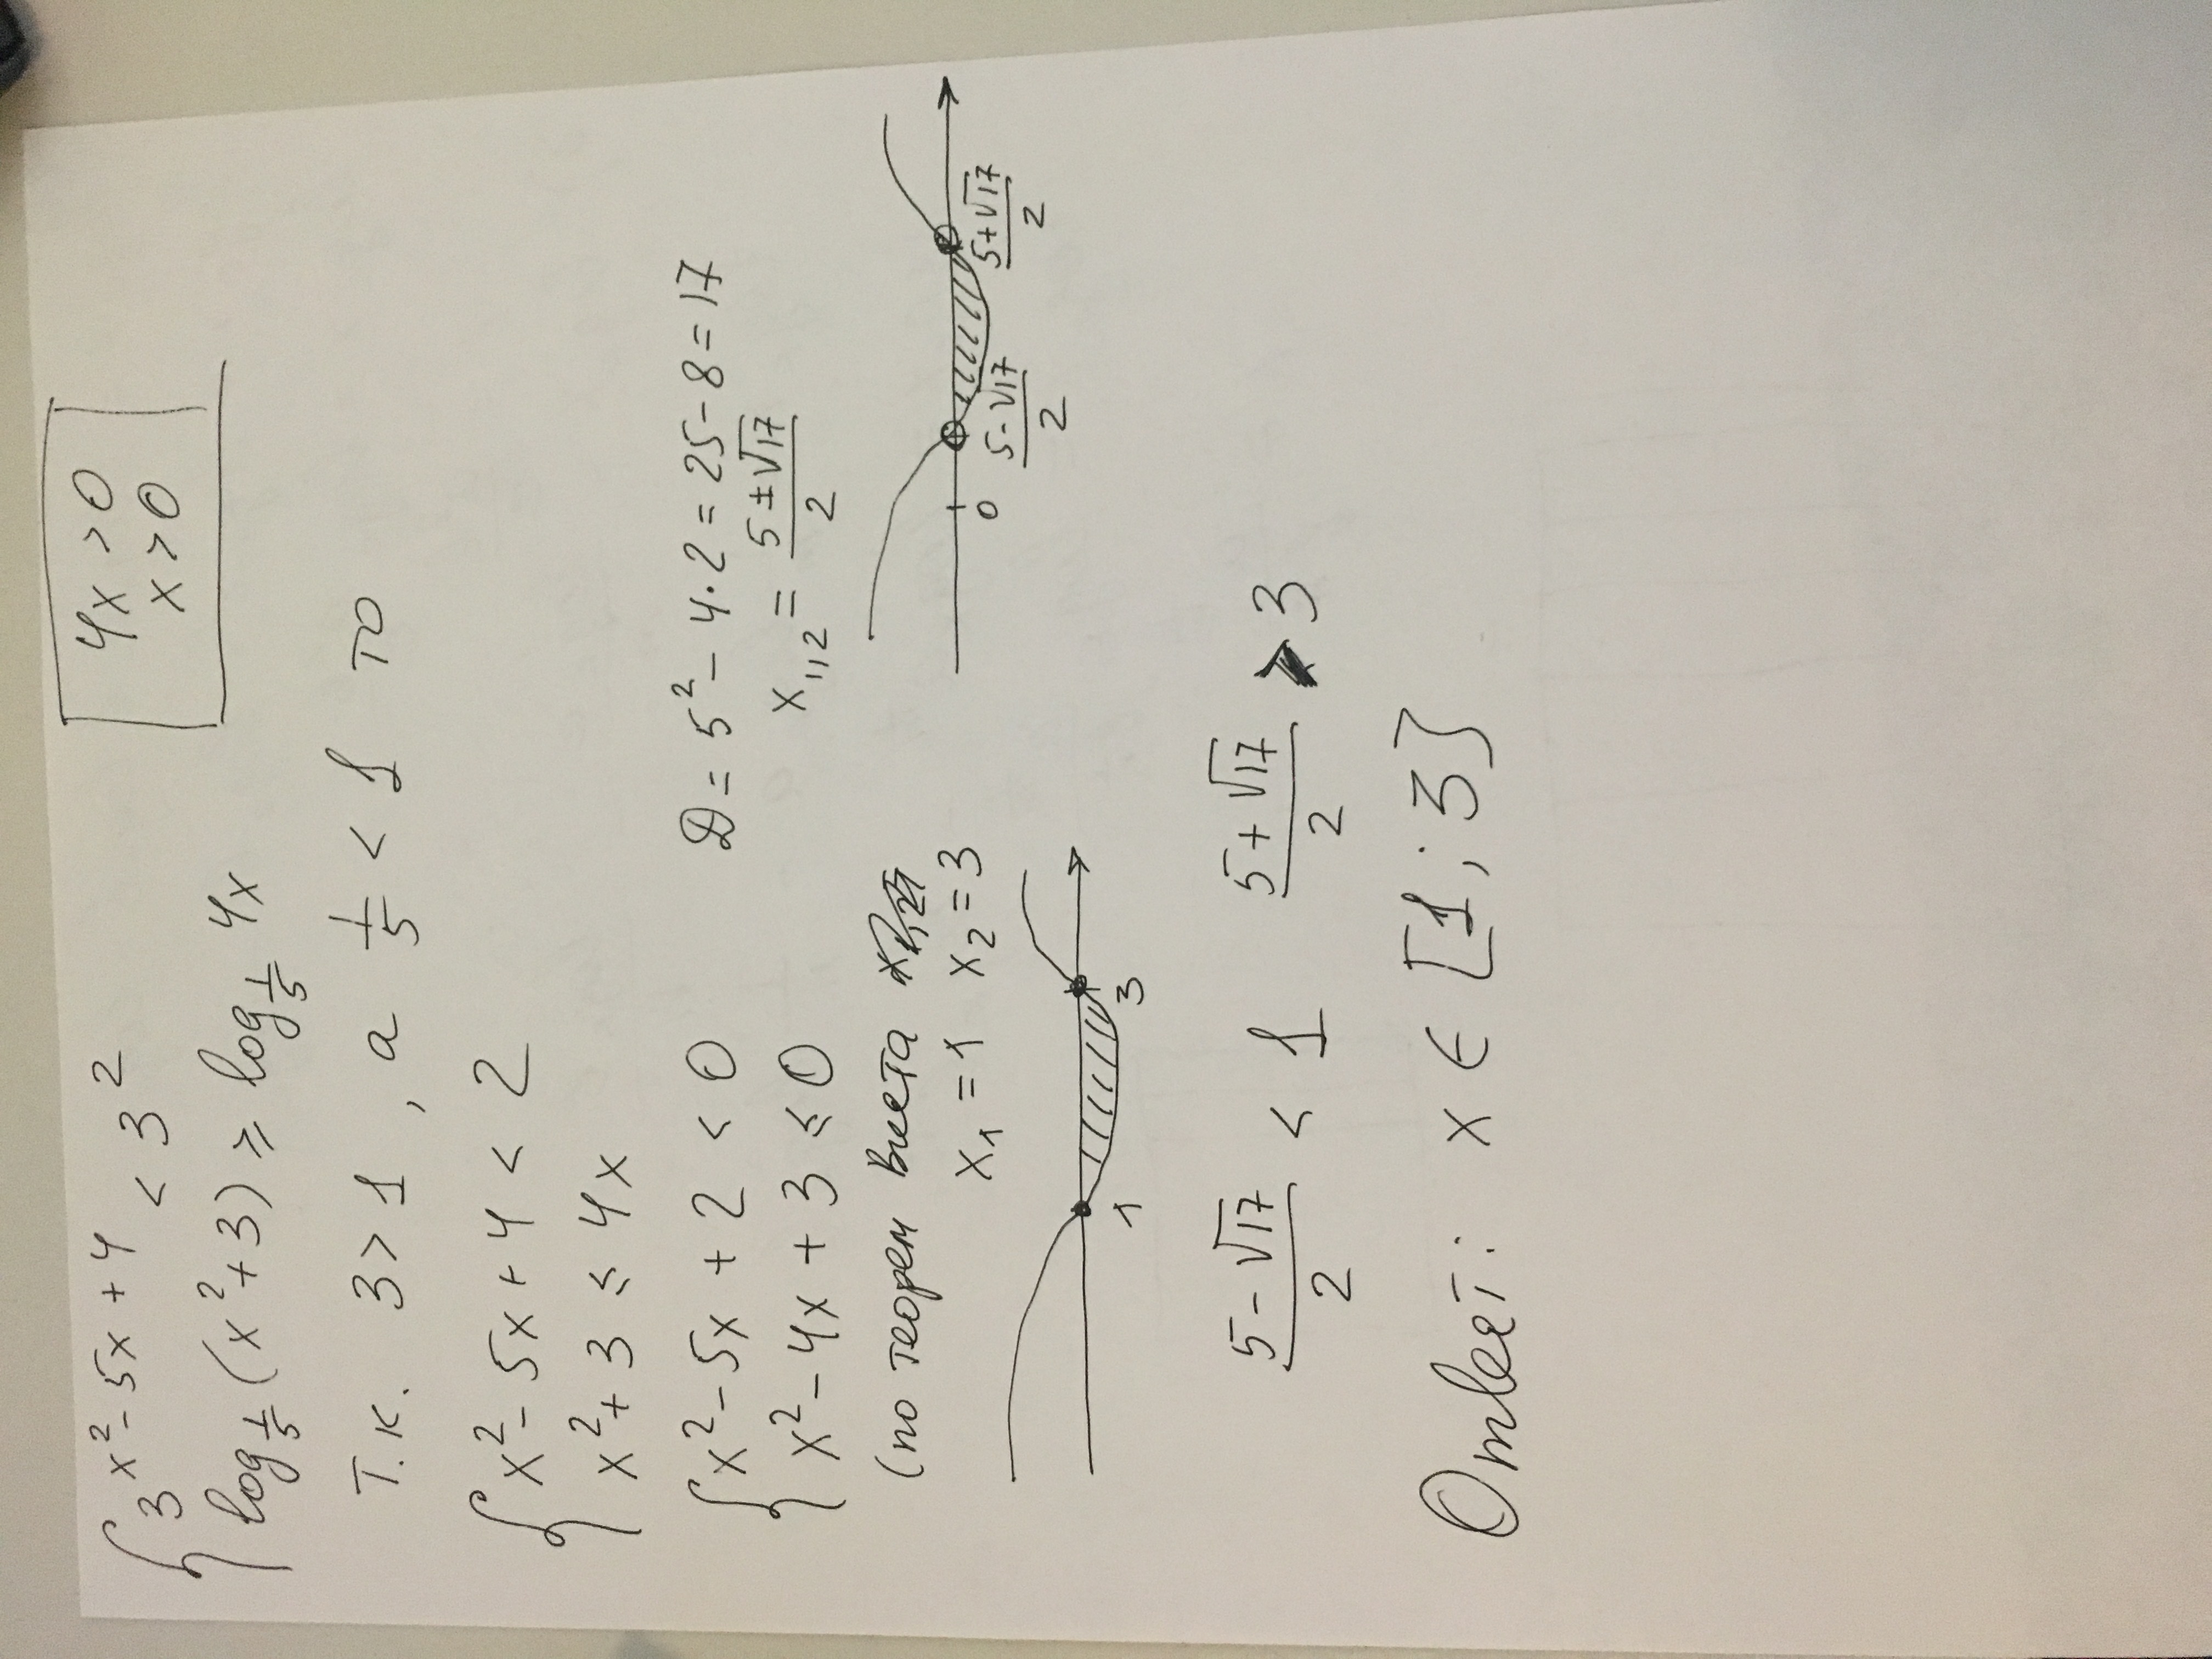 3^(x²-5x+4) < 3²
log_(1/5) (x²+3) ≥ log_(1/5) 4x
4x > 0
x > 0
Т.к. 3 > 1, а 1/5 < 1 то
x² - 5x + 4 < 2
x² + 3 ≤ 4x
x² - 5x + 2 < 0
x² - 4x + 3 ≤ 0
D = 5² - 4·2 = 25 - 8 = 17
x₁,₂ = (5 ± √17)/2
(по теорем Виета
x₁ = 1 x₂ = 3
1 3
0 (5-√17)/2 (5+√17)/2
(5-√17)/2 < 1 (5+√17)/2 > 3
Ответ: x ∈ [1; 3]